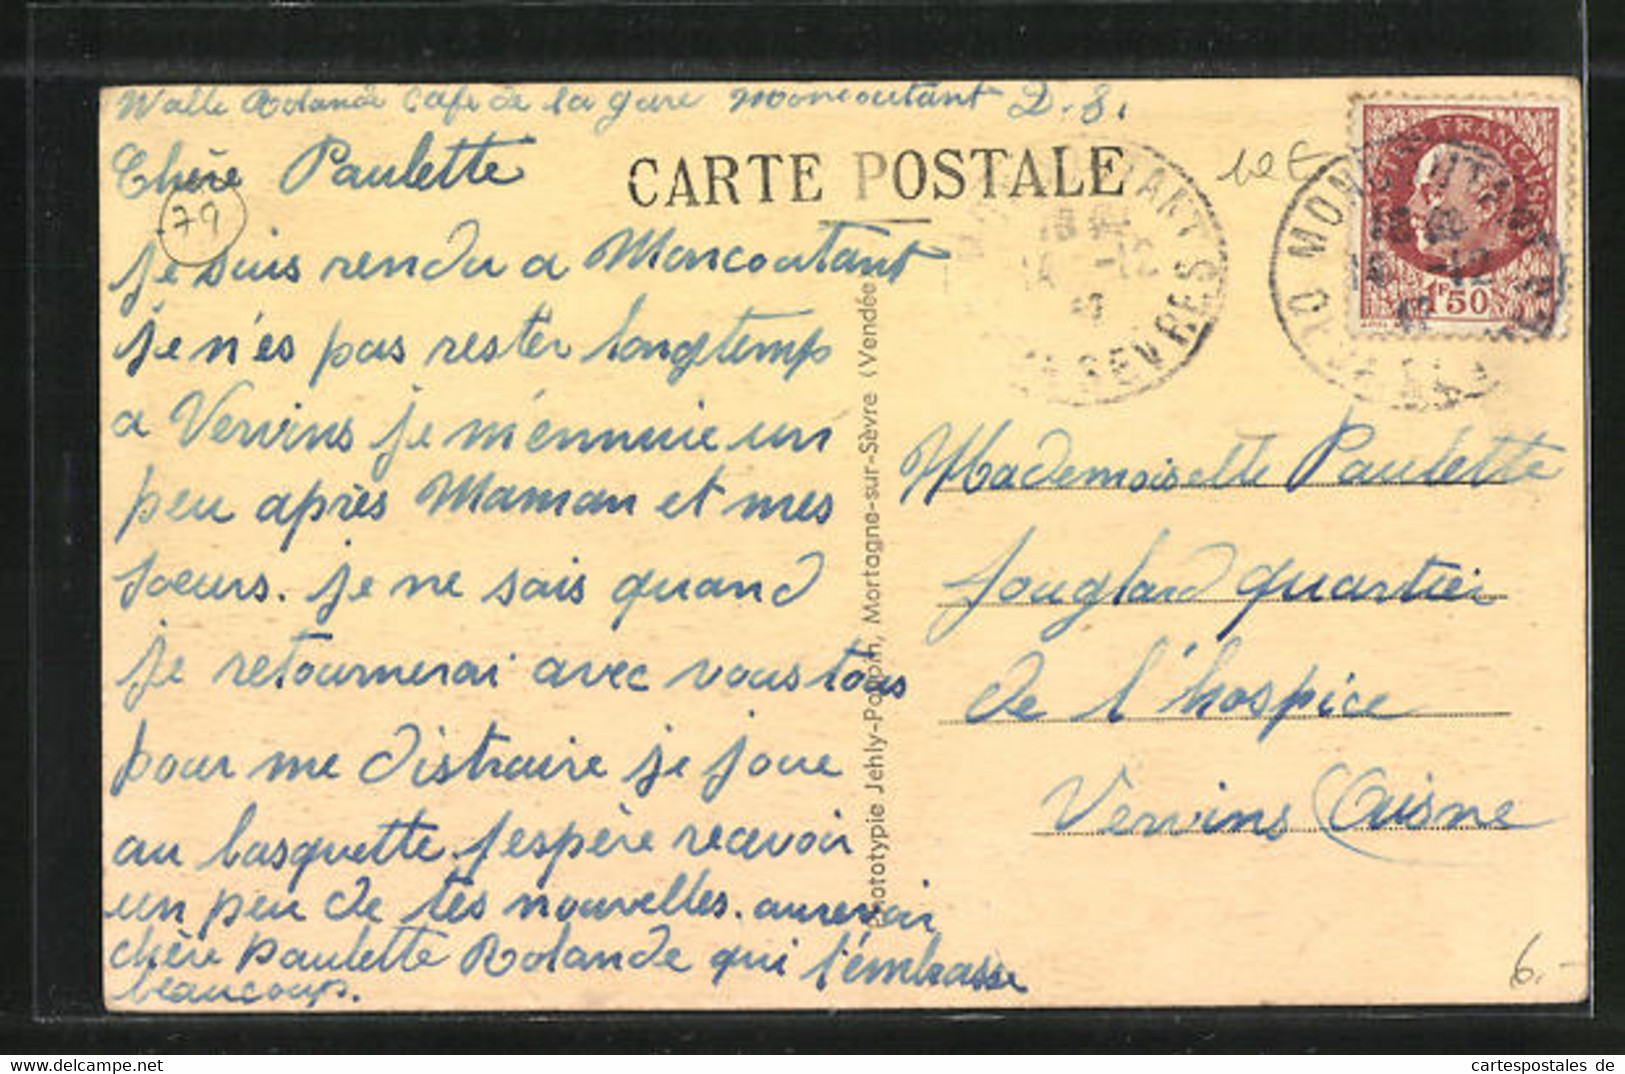 Walle Rolande Café de la gare Moncoutant D.S.
Chère Paulette
79
je suis rendu a Moncoutant
je n'es pas rester longtemp
a Vervins je m'ennuie un
peu après Maman et mes
soeurs. je ne sais quand
je retournerai avec vous tous
pour me distraire je joue
au basquette j'espère recevoir
un peu de tes nouvelles. aurevoir
chère Paulette Rolande qui t'embrasse
beaucoup.
CARTE POSTALE
Phototypie Jehly-Poupin, Mortagne-sur-Sèvre (Vendée
SEVRES
MONCOUTANT
FRANÇAISE
1F50
Mademoiselle Paulette
Jouglard quartier
de l'hospice
Vervins (Aisne
6.-
cartespostales de